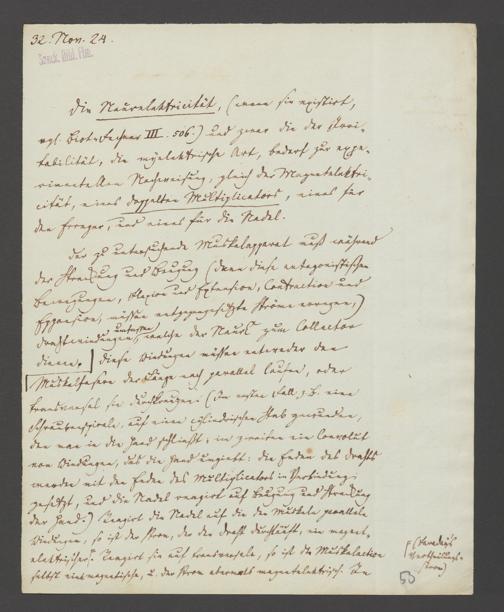 32. Nov. 24.
Senck. Bibl. Ffm.
Die Neurelektricität, (wenn sie existirt,
vgl. Biot-Fechner III. 506.) und zwar die der Irri-
tabilität, die myelektrische Art, bedarf zur expe-
rimentellen Nachweisung, gleich der Magnetelektri-
cität, eines doppelten Multiplicators, eines für
den Erreger, und eines für die Nadel.
Der zu untersuchende Muskelapparat muß während
der Streckung und Beugung (denn diese antagonistischen
Bewegungen, Flexion und Extension, Contraction und
Expansion, müssen entgegengesetzte Ströme erregen,)
Drahtwindungen umfassen, welche der zum Collector
dienen. Diese Windungen müssen entweder den
Muskelfasern der Länge nach parallel laufen, oder
transversal sie durchkreuzen. (Im ersten Fall z. b. eine
Schraubenspirale auf einen cylindrischen Stab gewunden,
den man in die Hand schließt; im zweiten ein Convolut
von Windungen, das die Hand umgiebt: die Enden des Drahts
werden mit den Enden des Multiplicators in Verbindung
gesetzt, und die Nadel reagirt auf Beugung und Streckung
der Hand.) Reagirt die Nadel auf die den Muskeln parallele
Windungen, so ist der Strom, der den Draht durchläuft, ein magnet-
elektrischer. Reagirt sie auf transversale, so ist die Muskelaction
selbst eine magnetische, u. der Strom abermals magnetelektrisch. In
(Faraday's
Vertheilungs-
strom)
53